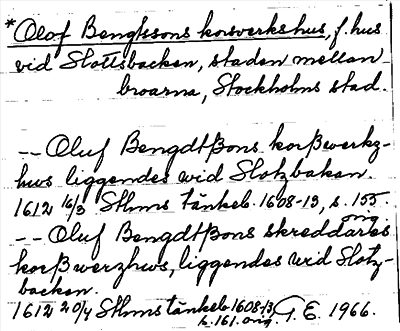 *Olof Bengtssons korsverkshus, f. hus
vid Slottsbacken, staden mellan
broarna, Stockholms stad.
-- Oluf Bengdtßons korßwerkz-
hws liggendes wid Slotzbaken.
1612 16/3 Sthms tänkeb. 1608-13, s. 155.
orig.
-- Oluf Bengdtßons skreddares
korßwerzhws, liggendes wid Slotz-
backen.
1612 20/4 Sthms tänkeb. 1608-13
s. 161. orig. G. E. 1966.